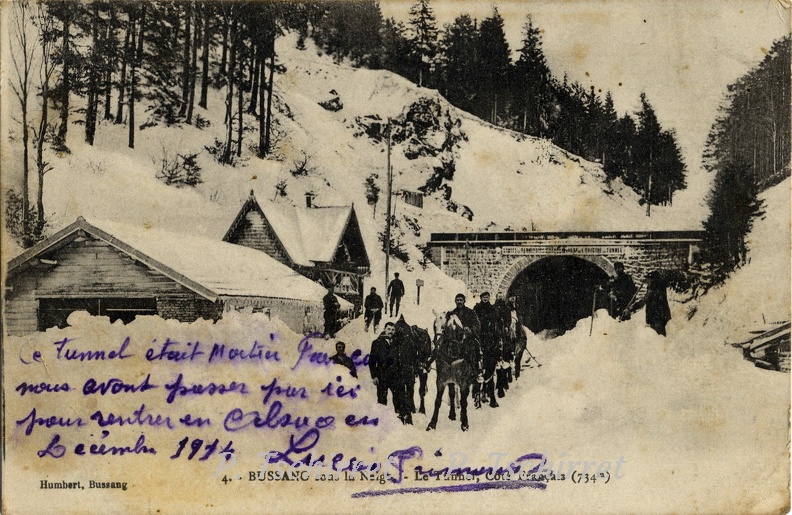 Ce Tunnel était Moitié
nous avont passer par ici
pour rentrer en Alsace en
Décembre 1914 Lucien
4. - BUSSANG sous la Neige - Le Tunnel, Côté Français (734m)
Humbert, Bussang